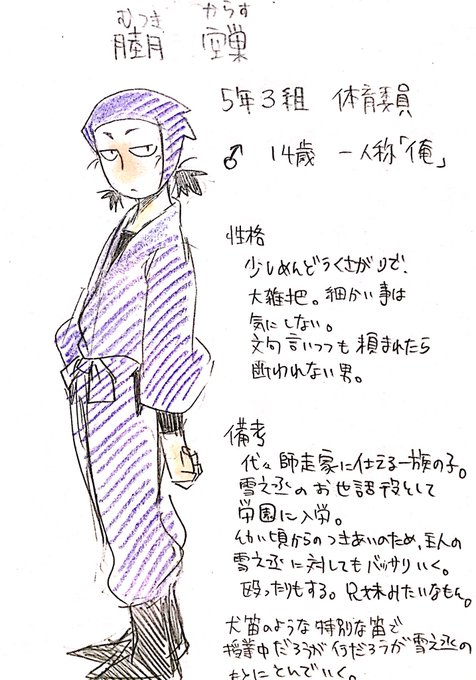 むつき からす
睦月
5年3組 体育委員
♂ 14歳 一人称「俺」
性格
少しめんどうくさがりで、
大雑把。細かい事は
気にしない。
文句言いつつも頼まれたら
断われない男。
備考
代々師走家に仕える一族の子。
雪之丞のお世話役として
学園に入学。
幼い頃からのつきあいのため、主人の
雪之丞に対してもバッサリいく。
殴ったりもする。兄妹みたいなもん。
犬笛のような特別な笛で
授業中だろうが何だろうが雪之丞の
もとにとんでいく。